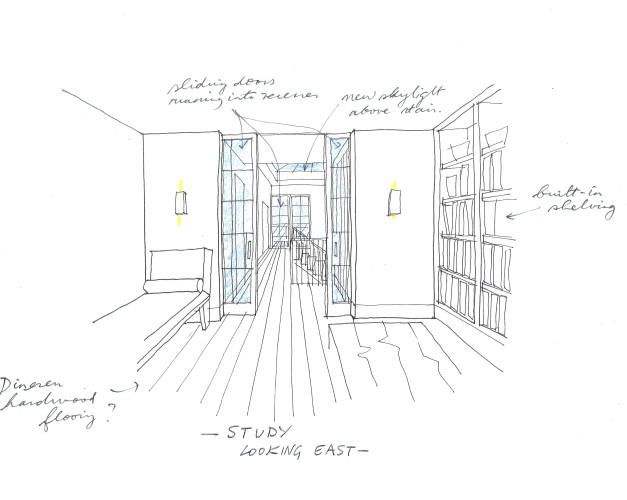 sliding doors
running into recesses
new skylight
above stair.
built-in
shelving
Dinesen
hardwood
flooring?
— STUDY
LOOKING EAST—